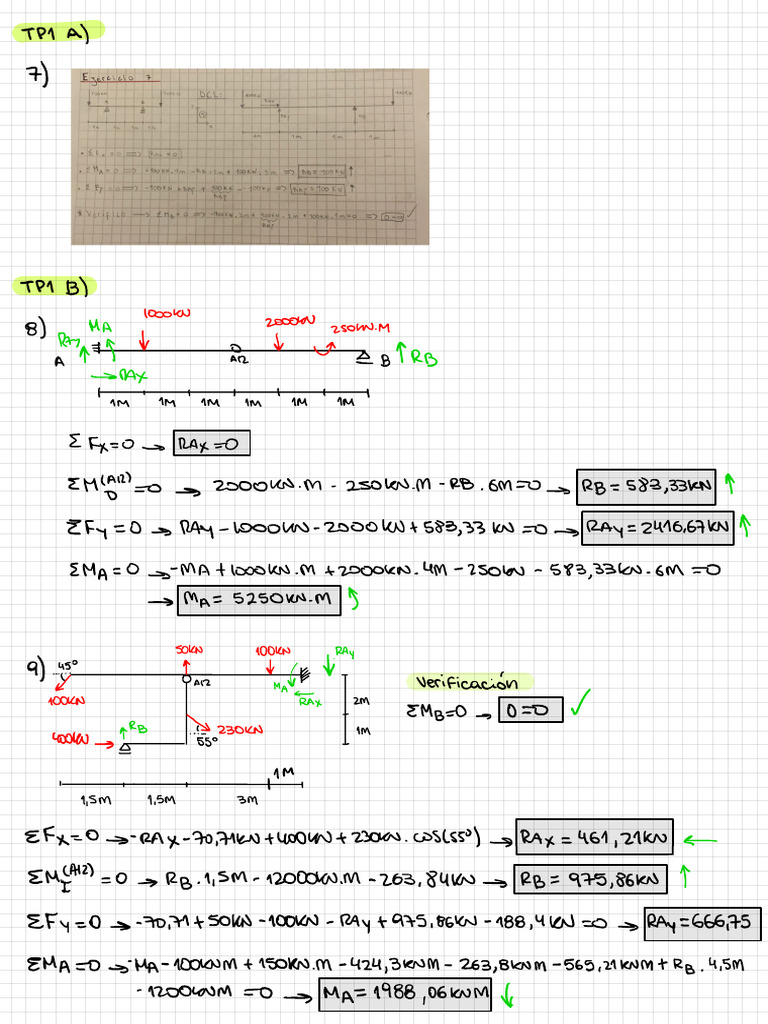 TP1 A)
7)
Ejercicio 7
DCL:
TP1 B)
8)
1000KN
2000KN
250KN.M
RAy
MA
A
A12
B
RB
RAX
1M 1M 1M 1M 1M 1M
Σ Fx=0 → RAx=0
ΣM D (A12) =0 → 2000KN.M - 250KN.M - RB.6M=0 → RB=583,33KN ↑
ΣFy=0 → RAy-1000KN-2000KN+583,33 KN=0 → RAy=2416,67KN ↑
ΣMA=0 → -MA+1000KN.M+2000KN.4M-250KN-583,33KN.6M=0
→ MA=5250KN.M
9)
45°
50KN
100KN
RAy
A12
MA
RAx
100KN
RB
230KN
400KN
55°
2M
1M
1M
1,5M 1,5M 3M
Verificación
ΣMB=0 → 0=0 ✓
ΣFx=0 → -RAx-70,71KN+400KN+230KN.COS(55°) → RAx=461,21KN ←
ΣM I (A12) =0 → RB.1,5M-12000KN.M-263,84KN → RB=975,86KN ↑
ΣFy=0 → -70,71+50KN-100KN-RAy+975,86KN-188,4KN=0 → RAy=666,75
ΣMA=0 → -MA-100KNM+150KN.M-424,3KNM-263,8KNM-565,21KNM+RB.4,5M
-1200KNM=0 → MA=1988,06KNM